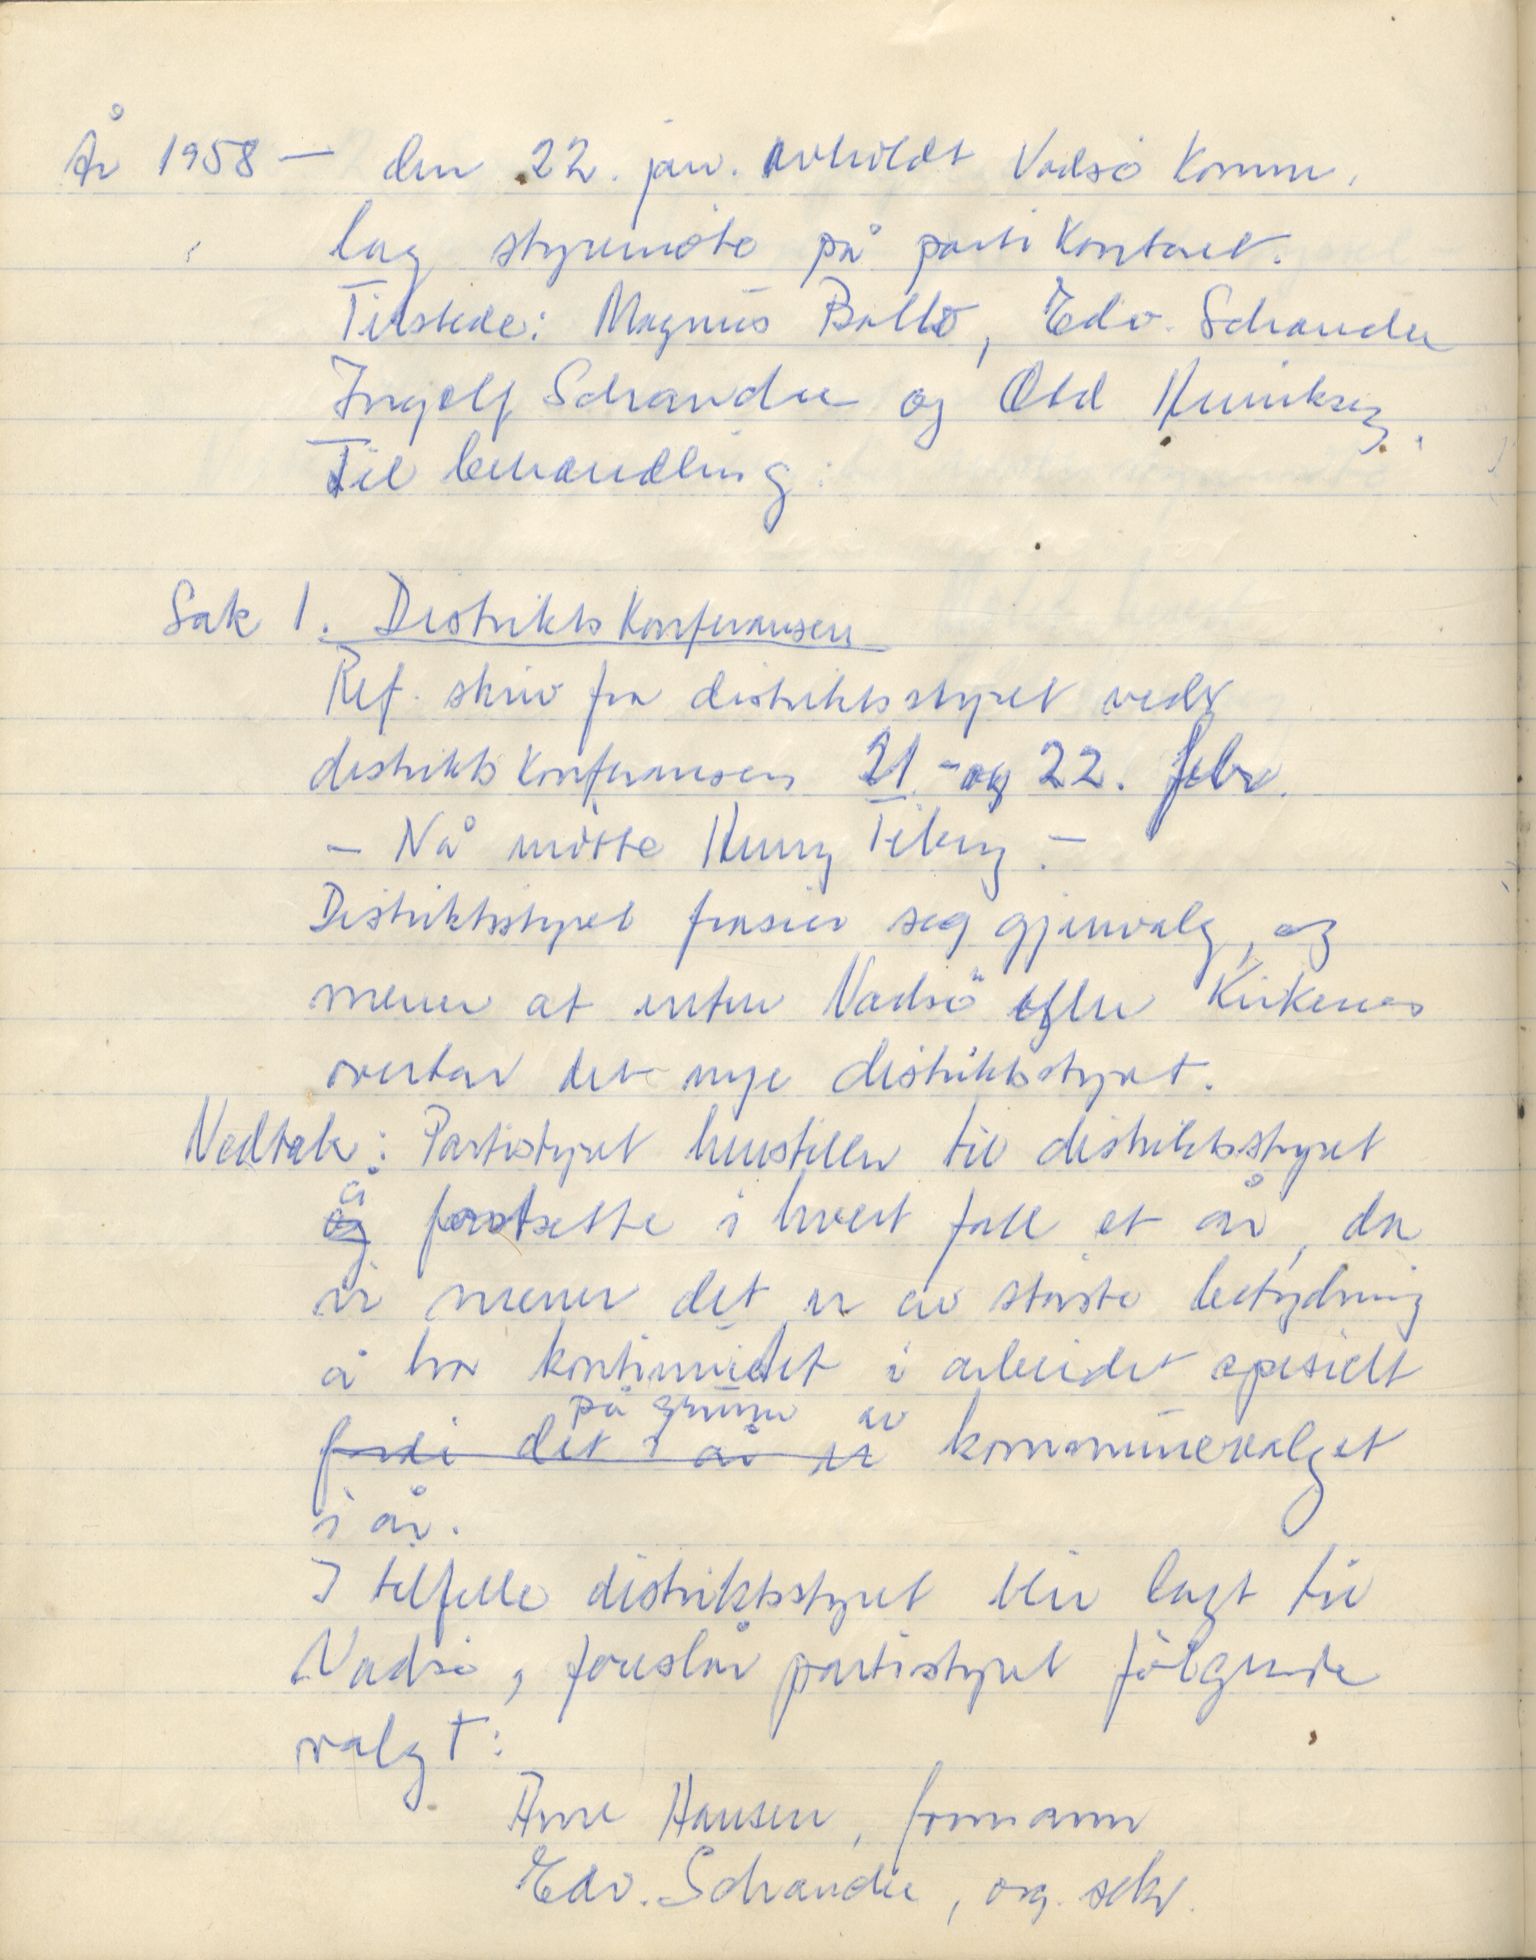 År 1958 — den 22. jan. avholdt Vadsø Komm.
lag styremöte på partikontoret.
Tilstede: Magnus Ballo, Edv. Schander
Ingolf Schander og Odd Henriksen.
Til behandling:
Sak 1. Distriktskonferansen
Ref. skriv fra distriktsstyret vedr
distriktskonferansen 21. - og 22. febr.
— Nå møtte Henry —
Distriktsstyret frasier seg gjenvalg, og
mener at enten Vadsö eller Kirkenes
overtar det nye distriktsstyret.
Vedtak: Partistyret henstiller til distriktsstyret
og å fortsette i hvert fall et år, da
vi mener det er av største betydning
å ha kontinuitet i arbeidet spesielt
på grunn av
fordi det i år er kommunevalget
i år.
I tilfelle distriktsstyret blir lagt til
Vadsø, foreslår partistyret følgende
valgt:
Arne Hansen, formann
Edv. Schander, org. sekr.